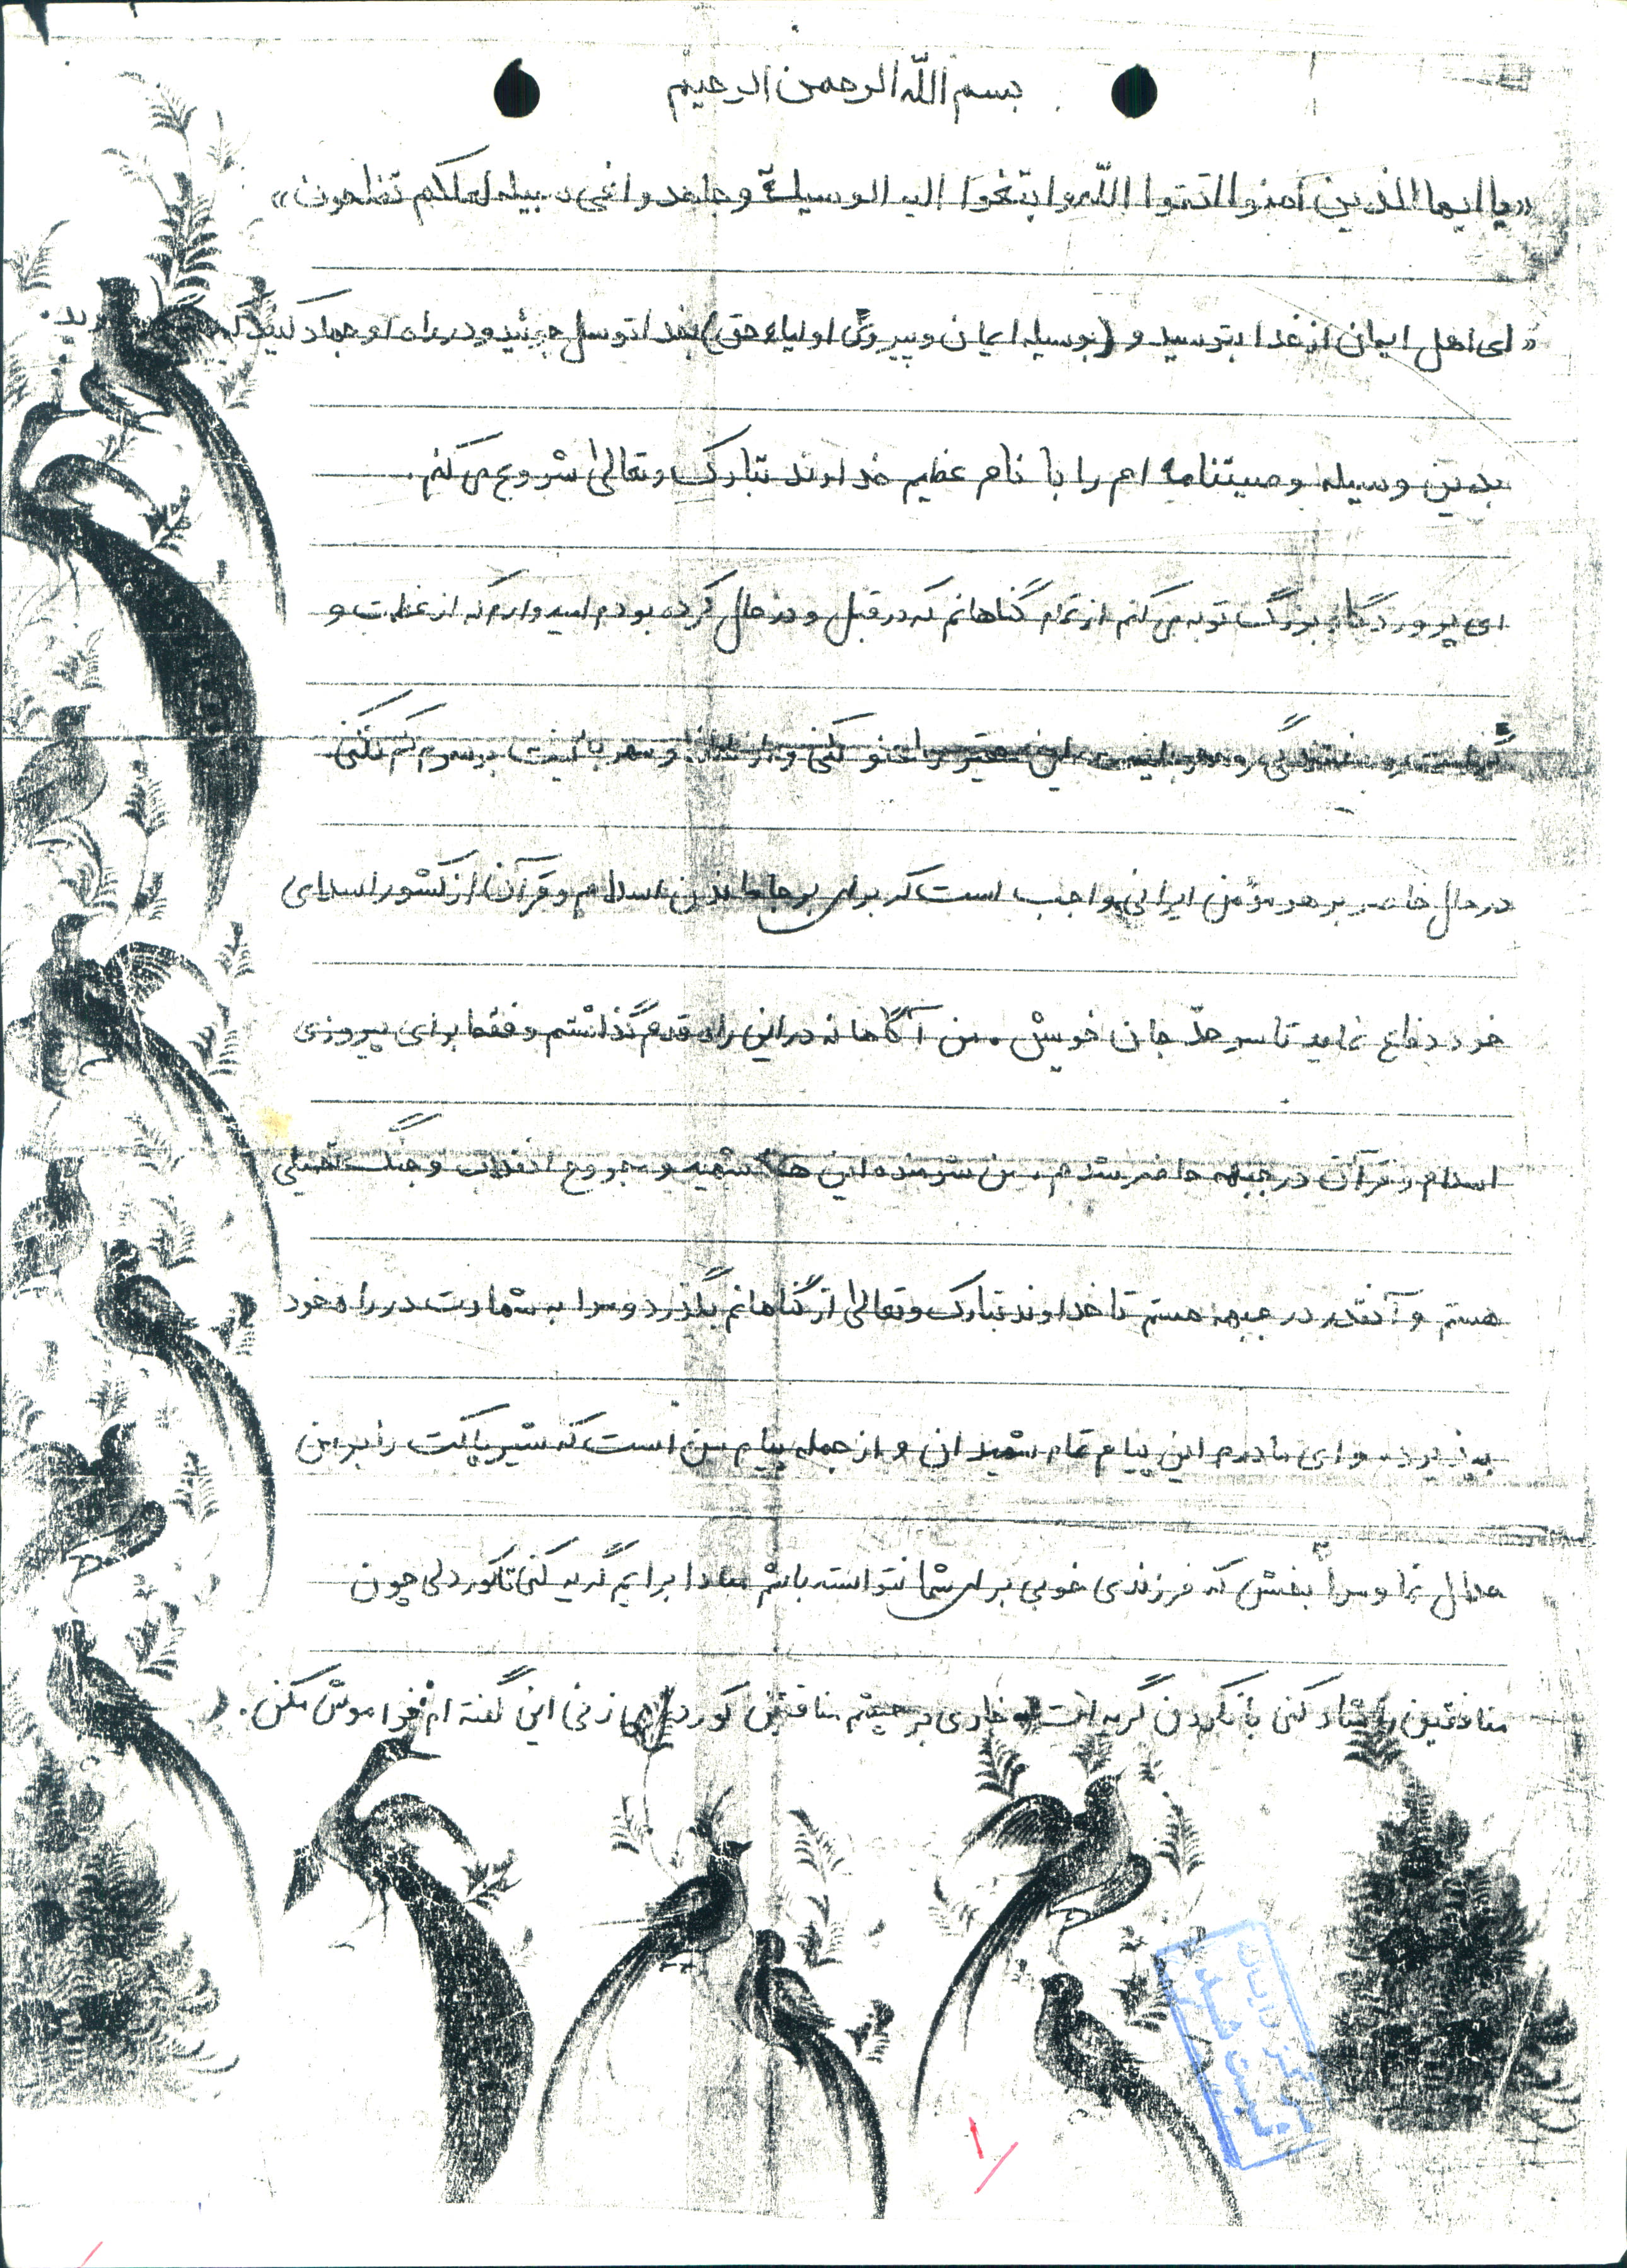 بسم اللّه الرحمن الرحیم
«یا ایها الذین آمنوا اتقوا اللّه وابتغوا الیه الوسیلة وجاهدوا فی سبیله لعلکم تفلحون»
«ای اهل ایمان از خدا بترسید و (بوسیله ایمان و پیروی اولیاء حق) بخدا توسل جوئید و در راه او جهاد کنید
بدین وسیله وصیتنامه ام را با نام عظیم خداوند تبارک و تعالی شروع می کنم.
ای پروردگار بزرگ توبه می کنم از تمام گناهانم که در قبل و در حال کرده بودم امیدوارم که از عظمت و
بخشندگی و مهربانیت این حقیر را عفو کنی و از لطف و مهربانیت بر سرم کم نکنی
در حال حاضر بر هر مؤمن ایرانی واجب است که برای برجا ماندن اسلام و قرآن از کشور اسلامی
خود دفاع نماید تا سر حدّ جان خویش. من آگاهانه در این راه قدم گذاشتم و فقط برای پیروزی
اسلام و قرآن در جبهه حاضر شدم. من شرمنده این همه شهید و مجروح انقلاب و جنگ تحمیلی
هستم و آنقدر در جبهه هستم تا خداوند تبارک و تعالی از گناهانم بگذرد و مرا به شهادت در راه خود
بپذیرد. و ای مادرم این پیام تمام شهیدان و از جمله پیام من است که شیر پاکت را بر من
حلال نما و مرا ببخش که فرزندی خوبی برای شما نتوانسته باشم مبادا برایم گریه کنی تا کوردلی چون
منافقین را شاد کنی با نکردن گریه ات خاری بر چشم منافقین کوردل می زنی این گفته ام فراموش مکن.
۱